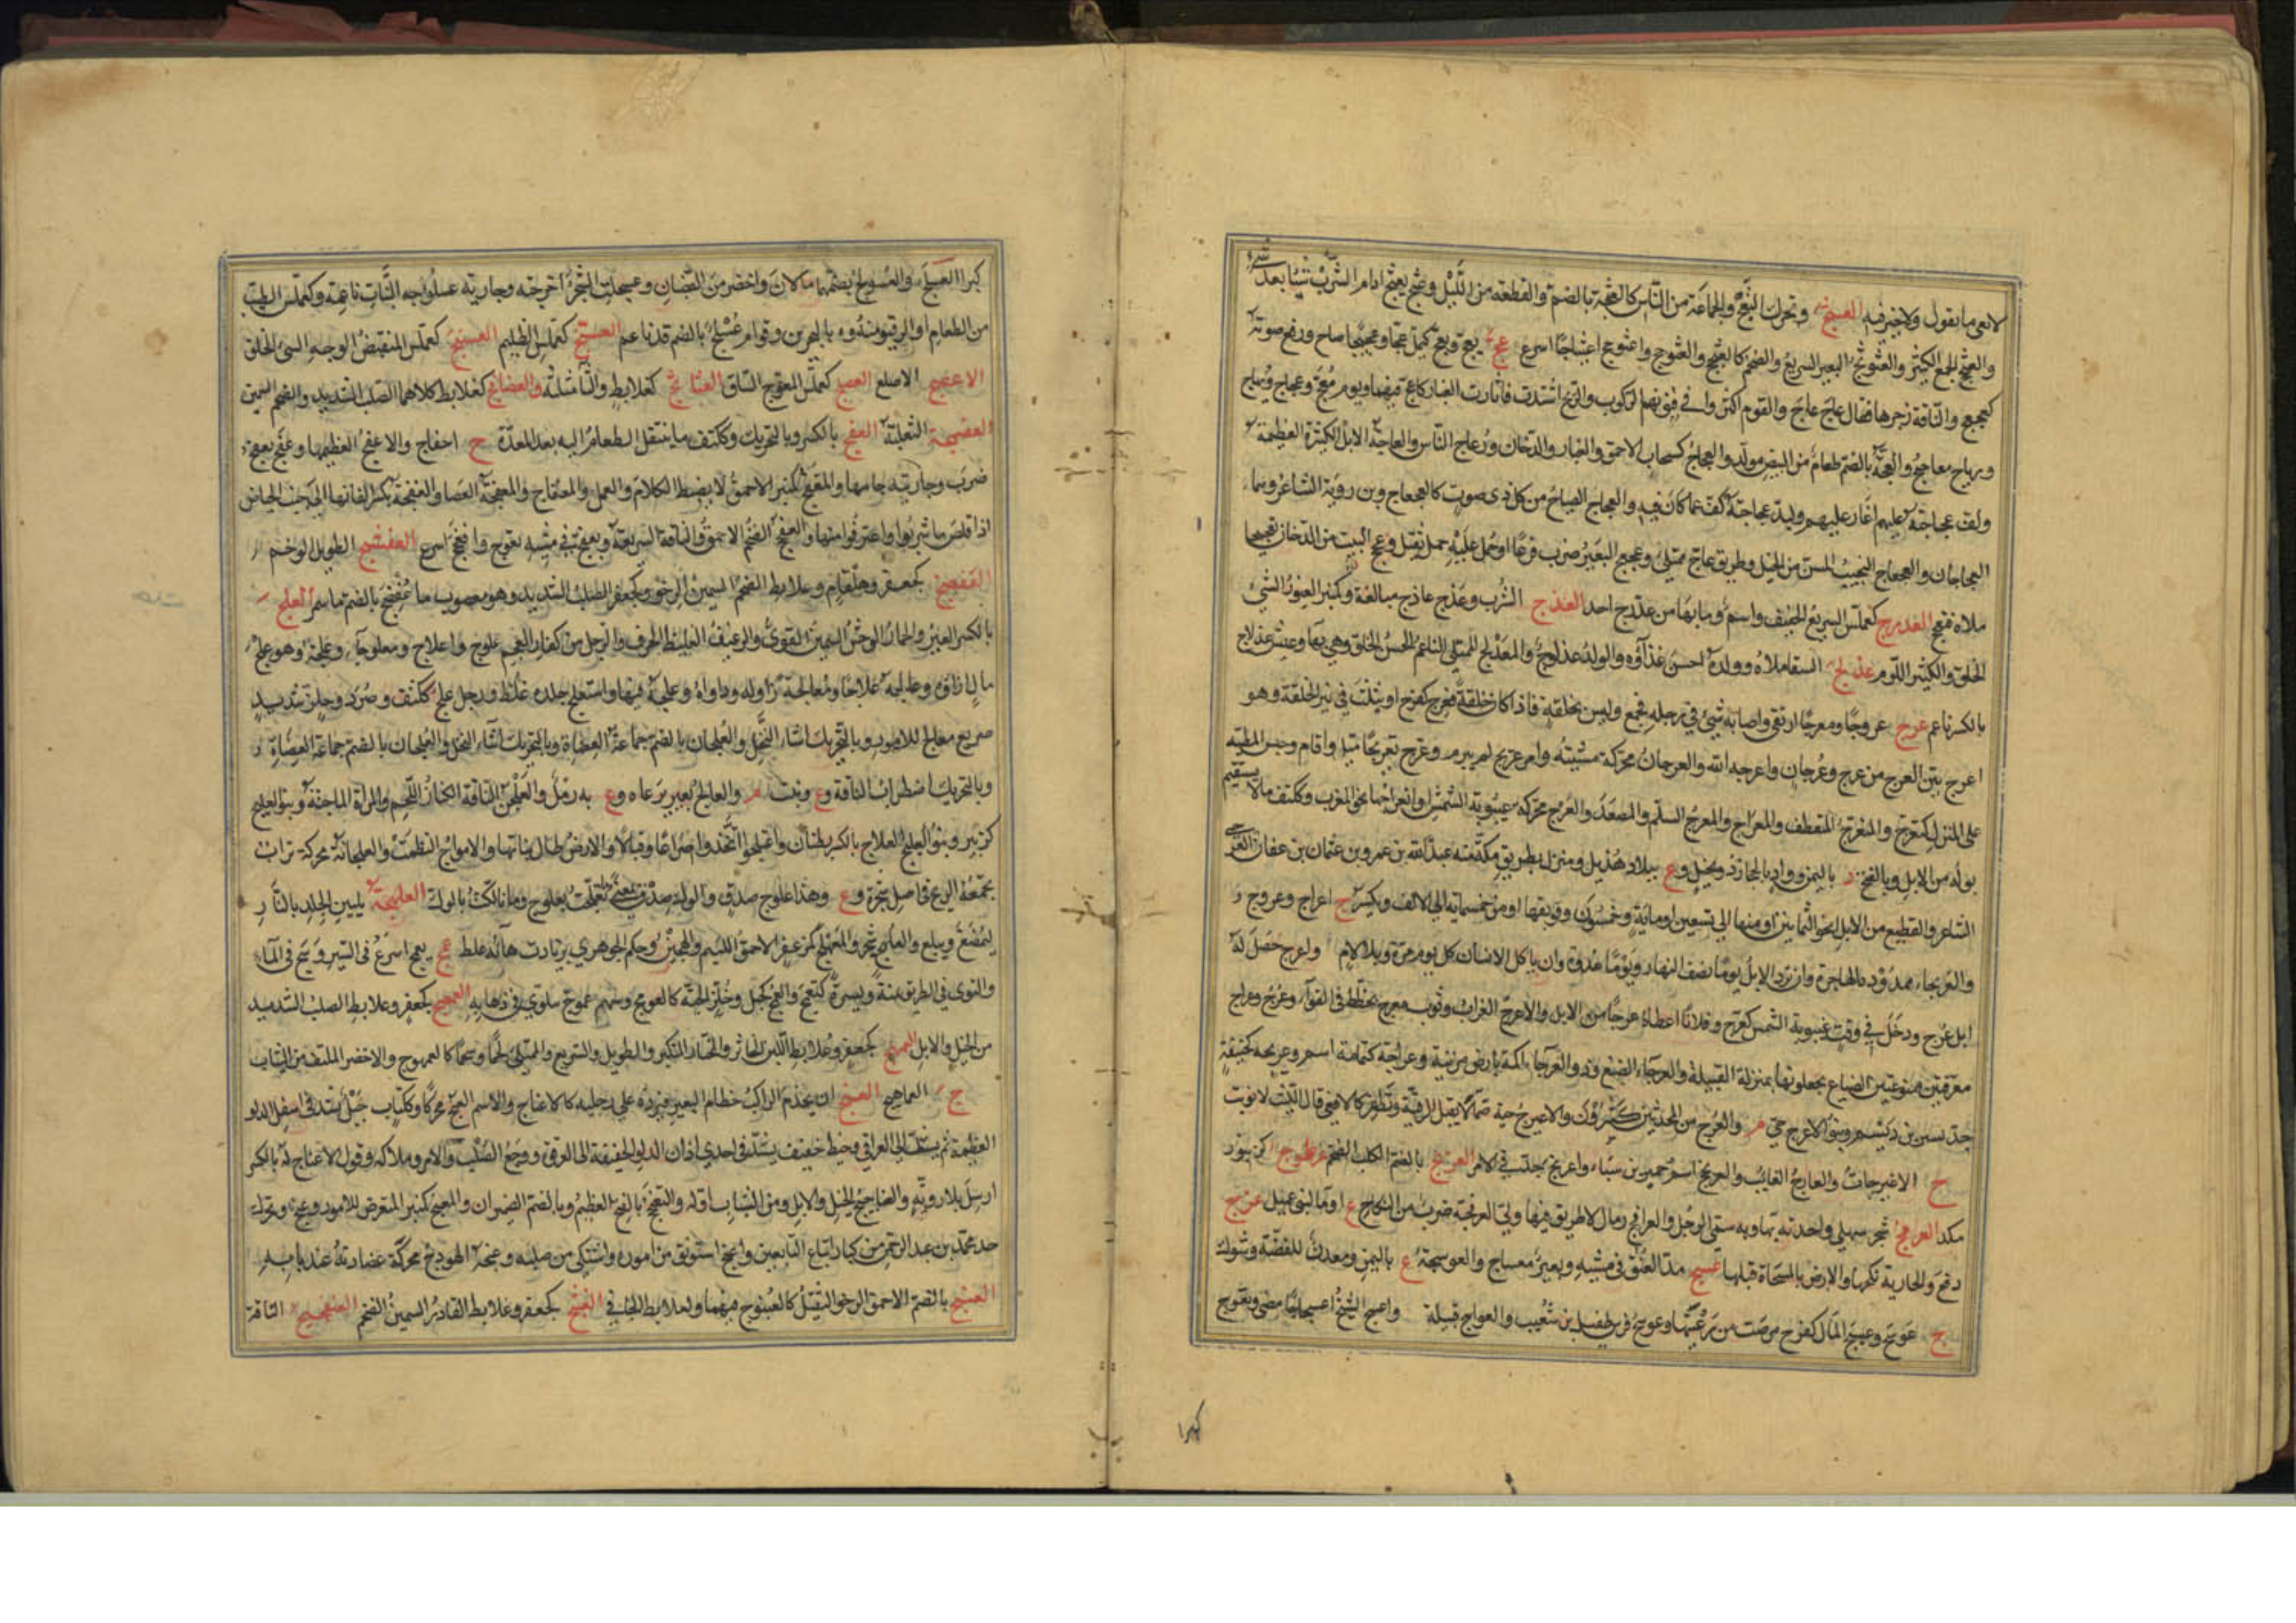 لا نعى ما يقول ولا خير فيه العثج وتحرك الثبج والجماعة من الناس كالعثجة بالضم والقطعة من الليل وعثج يعثج ادام الشرب شيئا بعد شىء
والعثج الجمع الكثير والعثوثج البعير السريع والضخم كالعثجج والعثوجج واعثوثج اعثيثاجا اسرع عج يعج ويعج كيمل عجا وعجيجا صاح ورفع صوته
كعجعج والناقة زجرها فقال عاج عاج والقوم اكثروا فى فنونهم الركوب والريح اشتدت فاثارت الغبار كاعج فيهما ويوم معج وعجاج
ورياح معاجيج والعجة بالضم طعام من البيض مولد والعجاج كسحاب الاحمق والغبار والدخان ورعاع الناس والعاجة الابل الكثيرة العظيمة
ولف عجاجته عليهم اغار عليهم ولبد عجاجته كف عما كان فيه والعجاج الصياح من كل ذى صوت كالعجعاج وبن روبة الشاعر وهما
العجاجان والعجعاج النجيب المسن من الخيل وطريق عاج ممتلئ وعجعج البعير ضرب فرغا او حمل عليه حمل ثقيل وعجج البيت من الدخان تعجيجا
ملاه فتعجج العدرج كعملس السريع الخفيف واسم وما بها من عدرج احد العذج الشرب وعذج عاذج مبالغة وكمنبر الغيور السيئ
الخلق والكثير اللوم عذلج السقا ملاه وولده احسن غذاؤه والولد عذلوج والمعذلج الممتلى الناعم الحسن الخلق وهى بهاء وعيش عذلاج
بالكسر ناعم عرج عروجا ومعرجا ارتقى واصابه شئ فى رجله فخمع وليس بخلقة فاذا كان خلقة فعرج كفرح او يثلث فى غير الخلقة وهو
اعرج بين العرج من عرج وعرجان واعرجه الله والعرجان محركة مشيته وامر عريج لم يبرم وعرج تعريجا ميل واقام وحبس المطية
على المنزل كتعرج والمنعرج المنعطف والمعراج والمعرج السلم والمصعد والعرج محركة غيبوبة الشمس او انعراجها نحو المغرب وككتف ما لا يستقيم
بوله من الابل وبالفتح د باليمن وواد بالحجاز ذو نخيل وع ببلاد هذيل ومنزل بطريق مكة منه عبد الله بن عمرو بن عثمان بن عفان العرجى
الشاعر والقطيع من الابل نحو الثمانين او منها الى تسعين او مائة وخمسون وفويقها او من خمسمائة الى الالف ويكسر ج اعراج وعروج و
والعريجاء ممدودة الهاجرة وان ترد الابل يوما نصف النهار ويوما غدوة وان ياكل الانسان كل يوم مرة وبلا لام واعرج حصل له
ابل عرج ودخل فى وقت غيبوبة الشمس كعرج وفلانا اعطاه عرجا من الابل والاعرج الغراب وثوب معرج مخطط فى التواء وعرج وعراج
معرفتين ممنوعتين الضباع يجعلونها بمنزلة القبيلة والعرجاء الضبع وذو العرجاء اكمة بارض مزينة وعراجة كثمامة اسم وعريجة كحنيفة
جد يسير بن ديسم وبنو الاعرج حى م والعرج من المحدثين كثيرون والاعيرج حية صماء لا يقبل الرقية وتطفر كالافعى قال الليث لا يونث
ج الاعيرجات والعارج الغائب والعرنجج اسم حمير بن سبا واعرنجج جد فى الامر العربج بالضم الكلب الضخم عرطوج كزنبور
ملك العرفج شجر سهلى واحدته بهاء وبه سمى الرجل والعرافج رمال لا طريق فيها ولى العرفجة ضرب من النكاح ع او ماء لبنى عميل عزج
دفع والجارية نكحها والارض بالمسحاة قبلها عسج مد العنق فى مشيه وبعير معساج والعوسجة ع باليمن ومعدن للفضة وشوك
ج عوسج وعسج المال كفرح مرضت من رعيتها وعوسج فرس طفيل بن شعيب والعواسج قبيلة واعسج الشيخ اعسيجاجا مضى وتعوج
كبرا العسلج والعسلوج بضمهما ما لان واخضر من القضبان وعسلجت الشجرة اخرجته وجارية عسلوجة النبات ناعمة وكعملس الطيب
من الطعام او الرقيق منه وة بالبحرين وقوام عسلج بالضم قد ناعم العسنج كعملس الظليم العشنج كعملس المنقبض الوجه السئ الخلق
الاعضج الاصلع العصلج كعملس المعوج الساق كعلابط والثا مثلثة والعضافج كعلابط كلاهما الصلب الشديد والضخم السمين
العضمجة الثعلبة العفج بالكسر وبالتحريك وككتف ما ينتقل الطعام اليه بعد المعدة ج اعفاج والاعفج العظيمها وعفج يعفج
ضرب وجاريته جامعها والمعفج كمنبر الاحمق لا يضبط الكلام والعمل والمعفاج والمعفجة العصا والعفجة بكسر الفا نهاء الى جنب الحياض
اذا قلص ماء شربوا واغترفوا منها والعفنجج الضخم الاحمق والناقة السريعة وتعفج فى مشيه تعوج واعفنجج اسرع العفشج الطويل الوخم
العفضج كجعفر وهلقام وعلابط الضخم السمين الرخو وكجعفر الصلب الشديد وهو معصوب ما عفضج بالضم ما سمن العلج
بالكسر العير والحمار الوحش السمين القوى والرغيف الغليظ الحرف والرجل من كفار العجم علوج واعلاج ومعلوجاء وعلجة وهو علج
مال ازاؤه وعالجه علاجا ومعالجة زاوله وداواه وعلجه غلبه فيها واستعلج جلده غلظ ورجل علج ككتف وصرد وخلر شديد
صريع معالج للامور وبالتحريك اشاء النخل والعلجان بالضم جماعة العضاه وبالتحريك اشاء النخل والعلجان بالضم جماعة العضاه و
وبالتحريك اضطراب الناقة وع ونبت م والعالج بعير يرعاه وع به رمل والعلجن الناقة الكناز اللحم والمراة الماجنة وبنو العليج
كزبير وبنو العلاج بالكسر بطنان واعتلجوا اتخذوا صراعا وقتالا والارض طال نباتها والامواج التطمت والعلجانة محركة تراب
تجمعه الريح فى اصل شجرة وع وهذا علوج صدق والوك صدق بمعنى وما تعلجت بعلوج ما تالكت بالوك العلهجة تليين الجلد بالنار
ليمضغ ويبلع والعلهج شجر والمعلهج كمزعفر الاحمق اللئيم والهجين وحكم الجوهرى بزيادة هائه غلط عمج يعمج اسرع فى السير وسبح فى الماء
والتوى فى الطريق يمنة ويسرة كتعمج والعمج كجبل وخلر الحية كالعومج وسهم عموج يتلوى فى ذهابه العمضج كجعفر وعلابط الصلب الشديد
من الخيل والابل العمهج كجعفر وعلابط اللبن الخاثر والمختال المتكبر والطويل والسريع والممتلئ لحما وشحما كالعمهوج والاخضر الملتف من النبات
ج العماهيج العنج ان يجذب الراكب خطام البعير فيرده على رجليه كالاعناج والاسم العنج محركا وككتاب حبل يشد فى اسفل الدلو
العظيمة ثم يشد الى العراقى وخيط خفيف يشد فى احدى اذان الدلو الخفيفة الى العرقوة ووجع الصلب والامر وملاكه وقول لا عناج له بالكسر
ارسل بلا روية والعناجيج الخيل والابل ومن الشباب اوله والعنجج بالفتح العظيم وبالضم الضيمران والمعنج كمنبر المتعرض للامور وعنج ويحرك
جد محمد بن عبد الرحمن من كبار اتباع التابعين واعنج استوثق من اموره واشتكى من صلبه وعنجة الهودج محركة عضادته عند بابه
العنبج بالضم الاحمق الرخو الثقيل كالعنبوج فيهما وكعلابط الجافى العنثج كجعفر وعلابط الفادر السمين الضخم العنفجيج الناقة